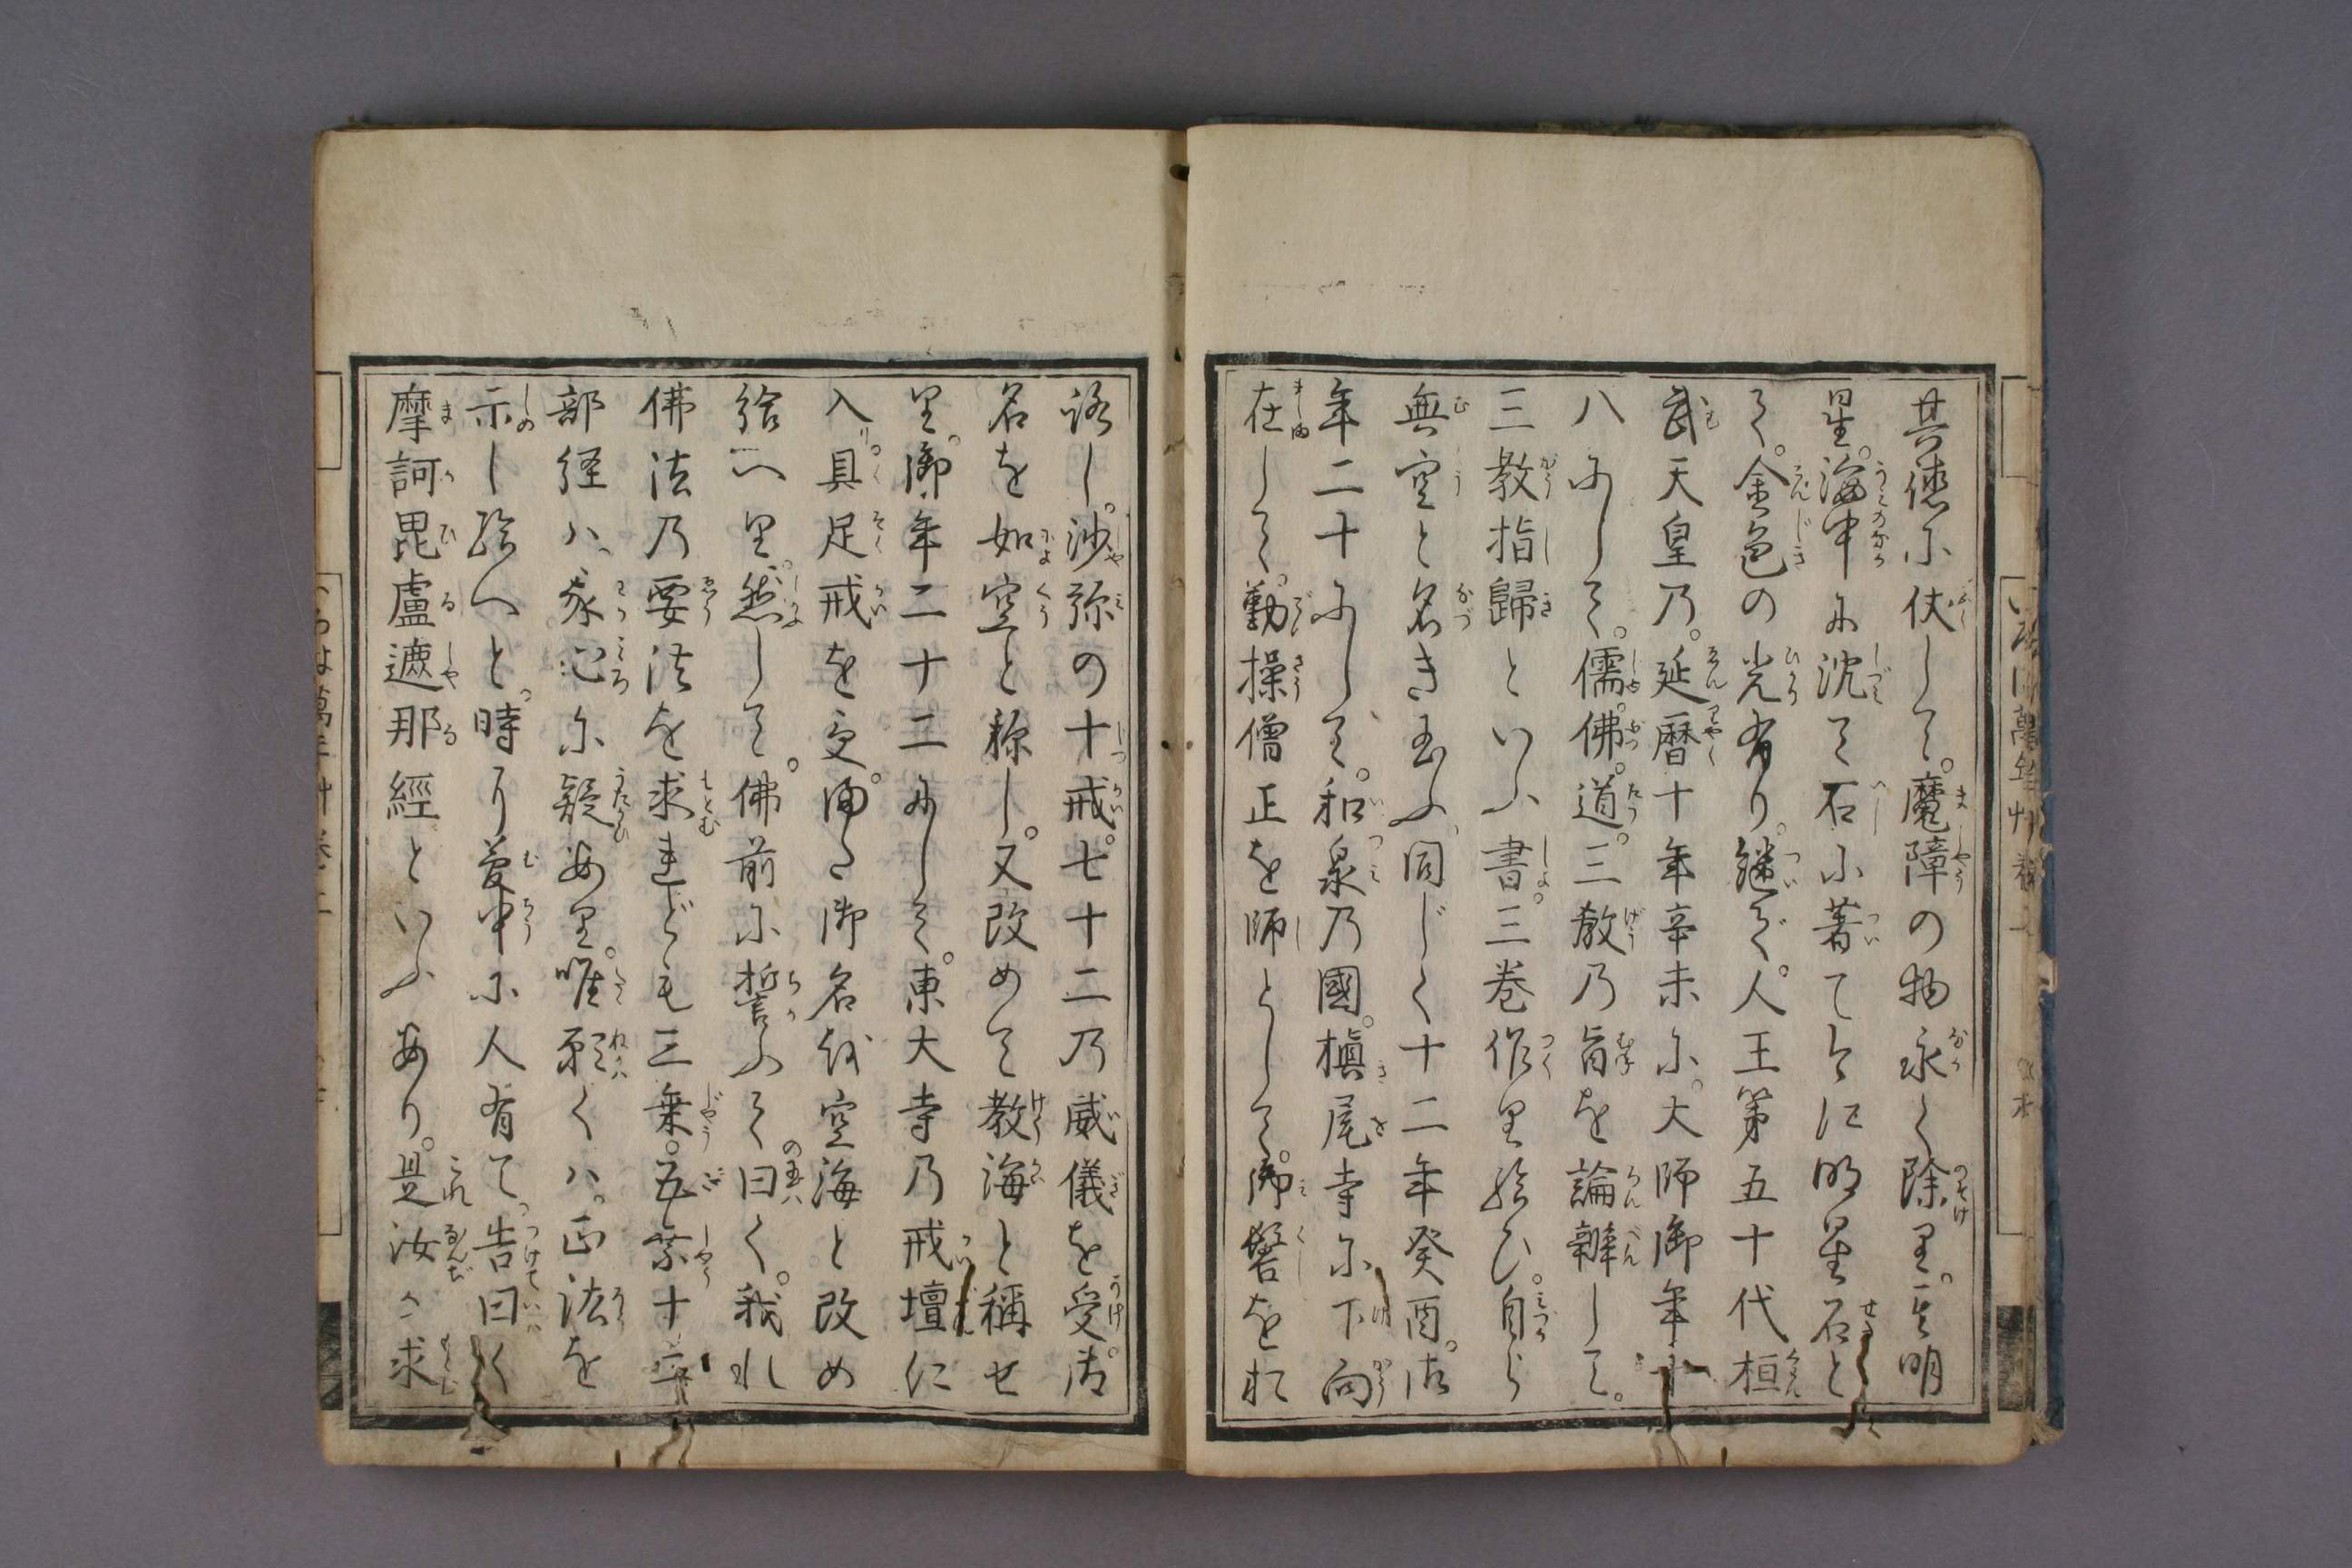 其徳に伏して。魔障の物永く除里。〻明
星。海中に沈て石に著て今に明星石と
て。金色の光有り。継て。人王第五十代桓
武天皇乃。延暦十年辛未に。大師御年十
八にして。儒。佛。道。三教乃旨を論辦して。
三教指歸といふ書。三巻作里給ひ。自ら
無空と名き玉ふ。同じく十二年癸酉。御
年二十にして。和泉乃國。槇尾寺に下向
在して。勤操僧正を師として。御髻を於
ろし。沙弥の十戒。七十二乃威儀を受。御
名を如空と称し。又改めて教海と稱せ
里。御年二十二にして。東大寺乃戒壇に
入具足戒を受。御名を空海と改め
給へ里。然して。佛前に誓ふて曰く。我れ
佛法乃要法を求れども三乗。五乗十二
部経ハ。我心に疑あ里。唯願くハ。正法を
示し給へと。時に夢中に人有て。告曰く
摩訶毘盧遮那經といふあり。是汝が求